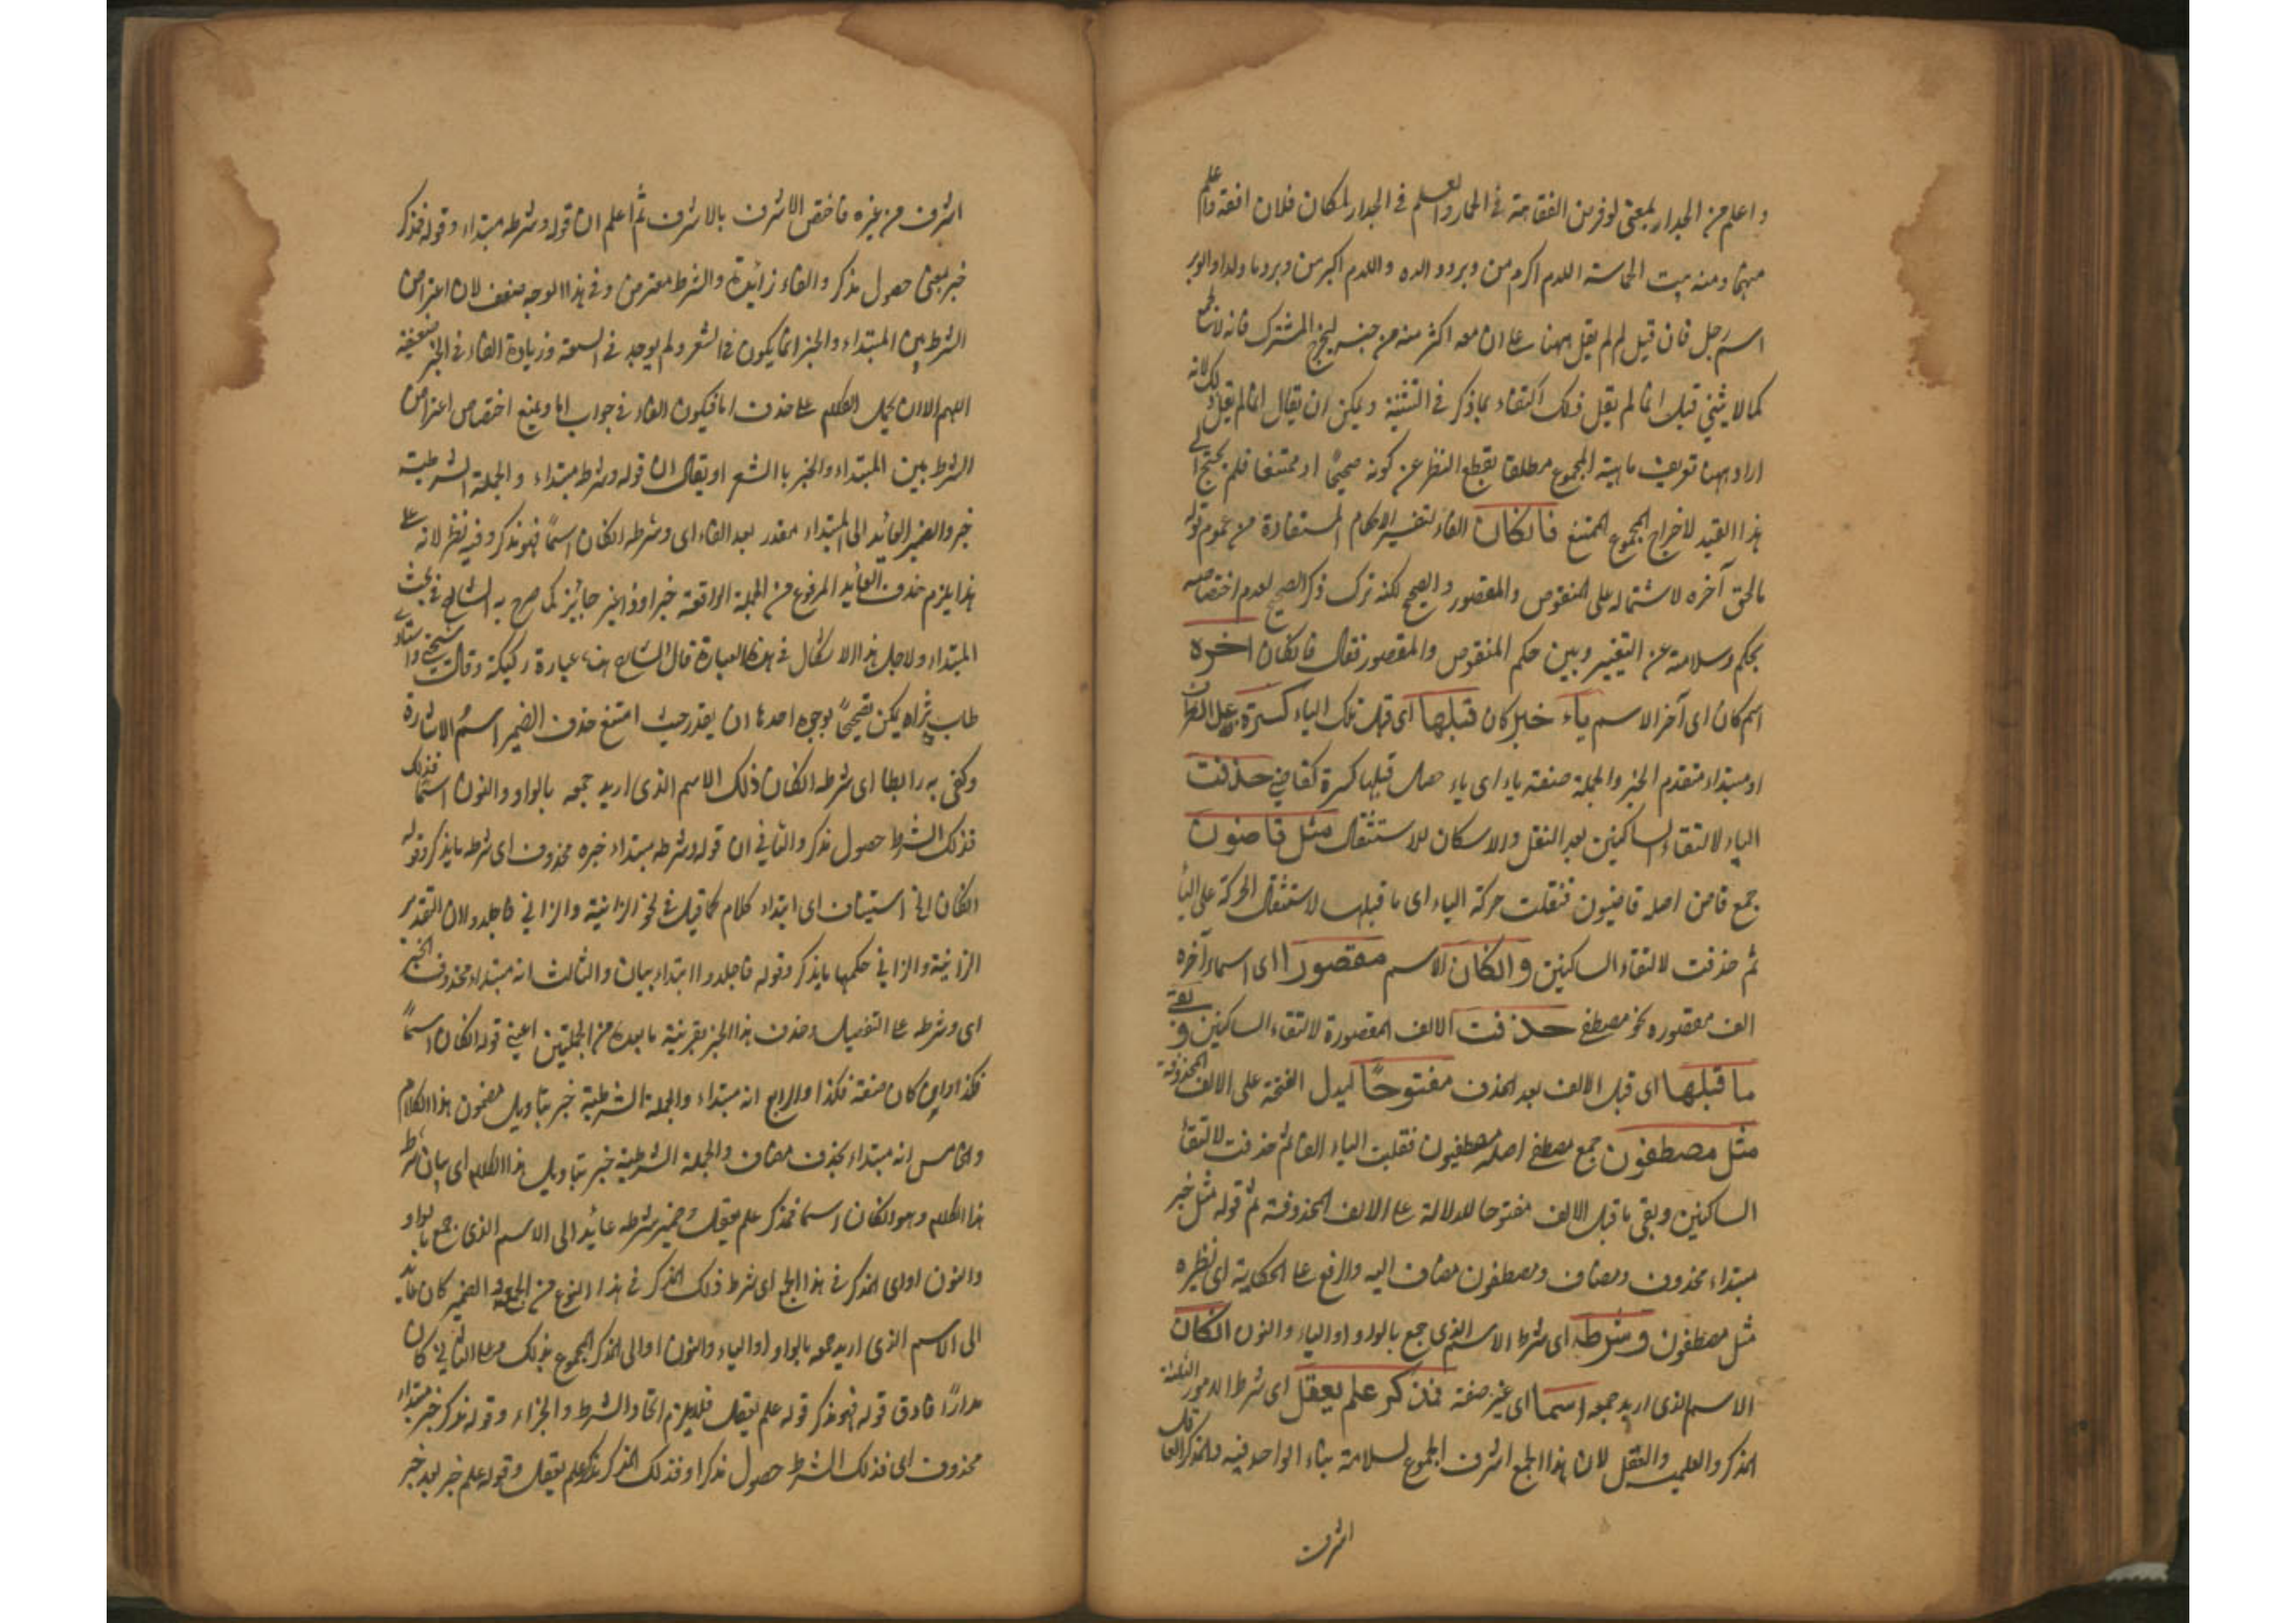 واعلم من الجدار بمعنى لوفرض الفقاهة في الحمار والعلم في الجدار لكان فلان افقه واعلم
منهما ومنه بيت الحماسة اللدم اكرم من وبر ووالده واللدم اكبر من وبر وما ولدا والوبر
اسم رجل فان قيل لم لم يقل ههنا على ان معه اكثر منه من جنسه ليخرج المشترك فانه لا يجمع
كما لا يثنى قيل انما لم يقل ذلك اكتفاء بما ذكر في التثنية ويمكن ان يقال انما لم يقل ذلك لانه
اراد ههنا تعريف ماهية المجموع مطلقا بقطع النظر عن كونه صحيحا او ممتنعا فلم يحتج الى
هذا القيد لاخراج المجموع الممتنع فانكان الفاء لتفسير الاحكام المستفادة من عموم قوله
مالحق آخره لاشتماله على المنقوص والمقصور والصحيح لكنه ترك ذكر الصحيح لعدم اختصاصه
بحكم وسلامته عن التغيير وبين حكم المنقوص والمقصور فقال فانكان اخره
اسم كان اى آخر الاسم ياء خبر كان قبلها اى قبل تلك الياء كسرة فاعل الظرف
او مبتداء متقدم الخبر والجملة صفة ياء اى ياء حصل قبلها كسرة كقاضي حذفت
الياء لالتقاء الساكنين بعد النقل والاسكان للاستثقال مثل قاضون
جمع قاض اصله قاضيون فنقلت حركة الياء اى ما قبلها لاستثقال الحركة على الياء
ثم حذفت لالتقاء الساكنين وانكان الاسم مقصورا اى اسما آخره
الف مقصورة نحو مصطفى حذفت الالف المقصورة لالتقاء الساكنين وبقى
ما قبلها اى قبل الالف بعد الحذف مفتوحًا ليدل الفتحة على الالف المحذوفة
مثل مصطفون جمع مصطفى اصله مصطفيون فقلبت الياء الفا ثم حذفت لالتقاء
الساكنين وبقى ما قبل الالف مفتوحا للدلالة على الالف المحذوفة ثم قوله مثل خبر
مبتداء محذوف ومضاف ومصطفون مضاف اليه والرفع على الحكاية اى نظيره
مثل مصطفون وشرطه اى شرط الاسم الذى جمع بالواو او الياء والنون انكان
الاسم الذى اريد جمعه اسما اى غير صفة فمذكر علم يعقل اى شرط الامور الثلثة
المذكر والعلمية والعقل لان هذا الجمع اشرف الجموع لسلامة بناء الواحد فيه والمذكر العاقل
اشرف
اشرف من غيره فاختص الاشرف بالاشرف ثم اعلم ان قوله وشرطه مبتداء وقوله فمذكر
خبر بمعنى حصول مذكر والفاء زائدة والشرط معترض وفى هذا الوجه ضعف لان اعتراض
الشرط بين المبتداء والخبر انما يكون فى الشعر ولم يوجد فى السعة وزيادة الفاء فى الخبر ضعيفة
اللهم الا ان يحمل الكلام على حذف اما فيكون الفاء فى جواب اما ويمنع اختصاص اعتراض
الشرط بين المبتداء والخبر بالشعر او يقال ان قوله وشرطه مبتداء والجملة الشرطية
خبر والضمير العائد الى المبتداء مقدر بعد الفاء اى وشرطه انكان اسمًا فهو مذكر وفيه نظر لانه على
هذا يلزم حذف العائد المرفوع من الجملة الواقعة خبرا وذا غير جائز كما صرح به الشارح فى بحث
المبتداء ولاجل هذا الاشكال فى هذه العبارة قال الشارح هذه عبارة ركيكة وقال شيخى واستاذى
طاب ثراه يمكن تصحيحًا بوجوه احدها ان يقدر حيث امتنع حذف الضمير اسم الاشارة
وكفى به رابطا اى شرطه انكان ذلك الاسم الذى اريد جمعه بالواو والنون اسمًا فذلك
فذلك الشرط حصول مذكر والثانى ان قوله وشرطه مبتداء خبره محذوف اى شرطه ما يذكر وقوله
انكان الى استيناف اى ابتداء كلام كما قيل فى نحو الزانية والزانى فاجلدوا ان التقدير
الزانية والزانى حكمهما ما يذكر وقوله فاجلدوا ابتداء بيان والثالث انه مبتداء محذوف الخبر
اى وشرطه على التفصيل وحذف هذا الخبر بقرينة ما بعده من الجملتين اعنى قوله انكان اسمًا
فكذا وان كان صفة فكذا والرابع انه مبتداء والجملة الشرطية خبر بتاويل مضمون هذا الكلام
والخامس انه مبتداء بحذف مضاف والجملة الشرطية خبر بتاويل هذا الكلام اى بيان شرطه
هذا الكلام وهو انكان اسما فمذكر علم يعقل وضمير شرطه عائد الى الاسم الذى جمع بالواو
والنون او اى المذكر فى هذا الجمع اى شرط ذلك المذكر فى هذا النوع من الجمع الضمير كان عائد
الى الاسم الذى اريد جمعه بالواو او الياء والنون او الى المذكر المجموع بذلك وعلى الثانى كان
مدارًا فادق قوله فهو مذكر قوله علم يعقل فلا يلزم اتحاد الشرط والجزاء وقوله مذكر خبر مبتداء
محذوف اى فذلك الشرط حصول مذكر او فذلك المذكر مذكر علم يعقل وقوله علم خبر بعد خبر